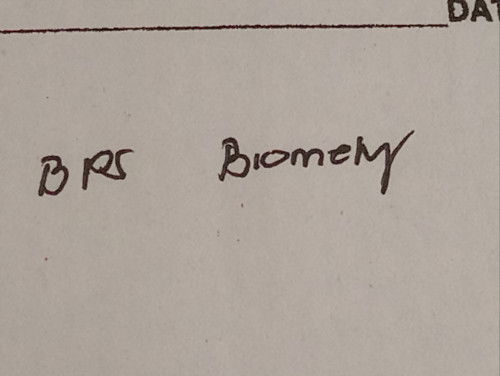 DAT
BPS Biometry